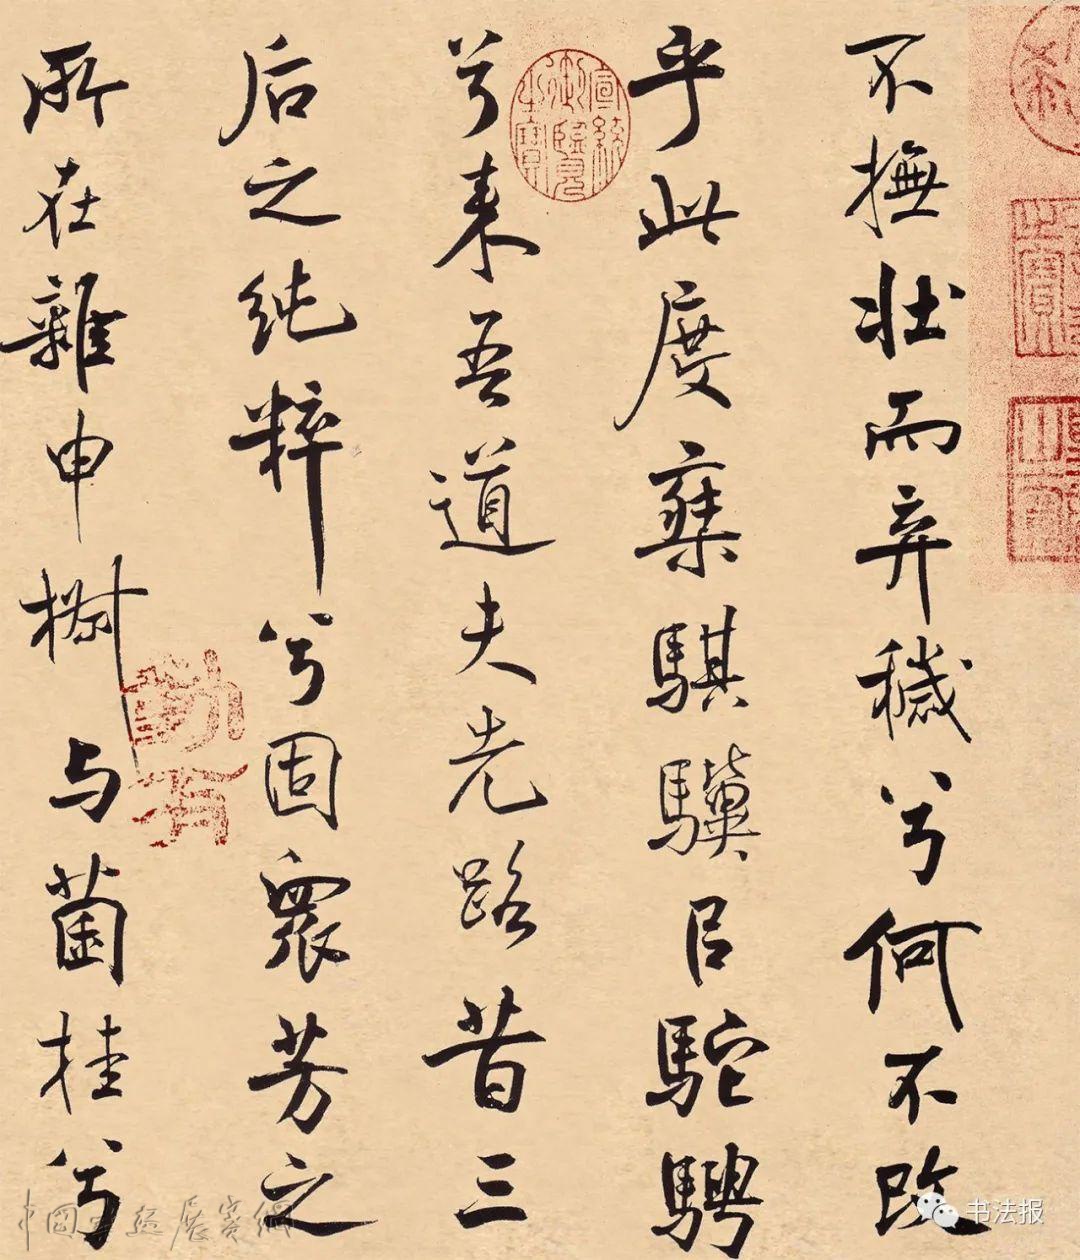 不撫壯而弃穢兮何不改
乎此度椉騏驥㠯駝騁
兮来吾道夫先路昔三
后之純粹兮固衆芳之
所在雜申椒与菌桂兮
宣統御覽之寶
书法报